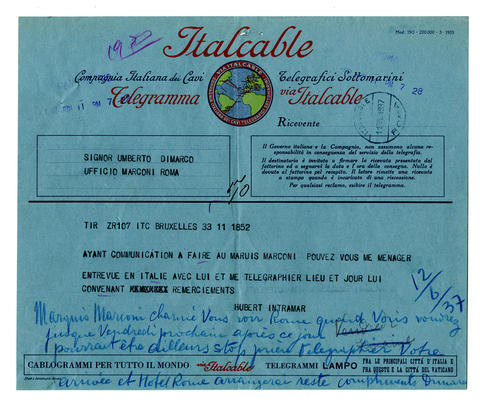 Mod. 150 - 200.000 - 3 - 1935
Italcable
Compagnia Italiana dei Cavi Telegrafici Sottomarini
PM 7 28
11 PM 7
Telegramma via Italcable
Ricevente
SIGNOR UMBERTO DIMARCO
UFFICIO MARCONI ROMA
Il Governo italiano e la Compagnia, non assumono alcuna responsabilità in conseguenza del servizio della telegrafia.
Il destinatario è invitato a firmare la ricevuta presentata dal fattorino ed a segnarvi la data e l'ora della consegna. Nulla è dovuto al fattorino pel recapito. Il latore rimette una ricevuta a stampa quando è incaricato di una riscossione.
Per qualsiasi reclamo, esibire il telegramma.
TIR ZR107 ITC BRUXELLES 33 11 1852
AYANT COMMUNICATION A FAIRE AU MARUIS MARCONI POUVEZ VOUS ME MENAGER
ENTREVUE EN ITALIE AVEC LUI ET ME TELEGRAPHIER LIEU ET JOUR LUI
CONVENANT REMERCIEMENTS
HUBERT INTRAMAR
12/6/37
Marquis Marconi charmé Vous voir Rome quand Vous voudrez
jusque Vendredi prochain après ce jour
pourrait être ailleurs stop prière télégraphier Votre
arrivée et Hotel Rome arrangerai reste compliments Dimarco
CABLOGRAMMI PER TUTTO IL MONDO via Italcable TELEGRAMMI LAMPO
FRA LE PRINCIPALI CITTÀ D'ITALIA E
FRA QUESTE E LA CITTÀ DEL VATICANO